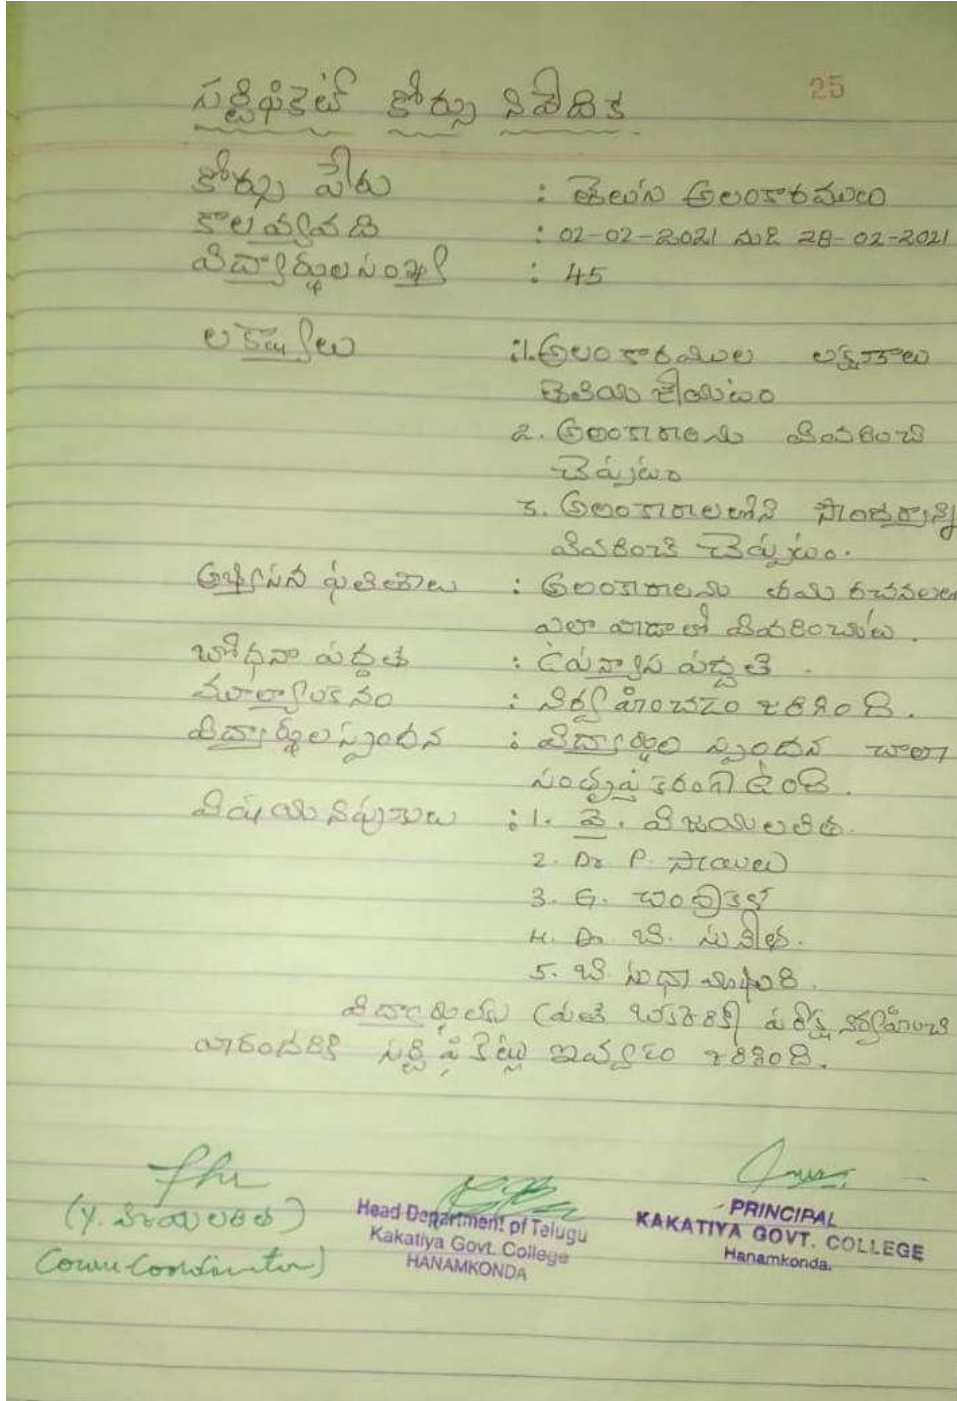 25
సర్టిఫికెట్ కోర్సు నివేదిక
కోర్సు పేరు : తెలుగు అలంకారములు
కాలవ్యవధి : 02-02-2021 నుడి 28-02-2021
విద్యార్థుల సంఖ్య : 45
లక్ష్యాలు : 1. అలంకారముల లక్షణాలు
తెలియ జేయుటం
2. అలంకారాలను వివరించి
చెప్పుటం
3. అలంకారాలలోని సౌందర్యాన్ని
వివరించి చెప్పుటం.
అభ్యసన ఫలితాలు : అలంకారాలను తమ రచనలలో
ఎలా వాడాలో వివరించుట.
బోధనా పద్ధతి : ఉపన్యాస పద్ధతి.
మూల్యాంకనం : నిర్వహించడం జరిగింది.
విద్యార్థుల స్పందన : విద్యార్థుల స్పందన చాలా
సంతృప్తికరంగా ఉంది.
విషయ నిపుణులు : 1. వై. విజయలలిత.
2. Dr P.
3. G. చంద్రకళ
4. Dr. బి. సునీత.
5. బి సుధా
విద్యార్థులకు ప్రతి ఒక్కరికి పరీక్ష నిర్వహించి
వారందరికి సర్టిఫికెట్లు ఇవ్వడం జరిగింది.
(Y. విజయలలిత)
Course Coordinator)
Head Department of Telugu
Kakatiya Govt. College
HANAMKONDA
PRINCIPAL
KAKATIYA GOVT. COLLEGE
Hanamkonda.